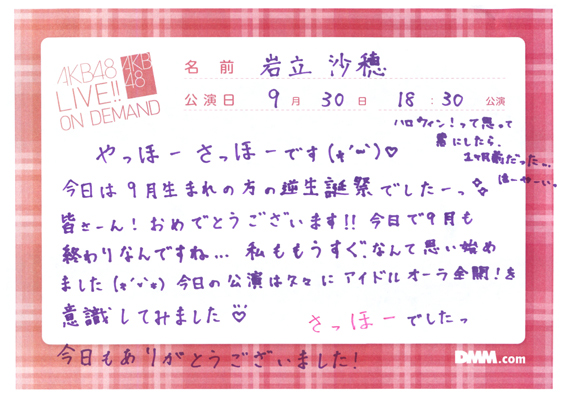 AKB48
LIVE!!
ON DEMAND
AKB
48
名前 岩立 沙穂
公演日 9月 30日 18:30 公演
ハロウィン!って思って
書にしたら、
1ヶ月前だった…
はーやーい。
やっほー さっほーです(*'ω')♡
今日は9月生まれの方の逆生誕祭でしたーっ
皆さーん!おめでとうございます!!今日で9月も
終わりなんですね… 私ももうすぐ、なんて思い始め
ました(*'v'*) 今日の公演は久々にアイドルオーラ全開!を
意識してみました♡
さっほーでしたっ
今日もありがとうございました!
DMM.com